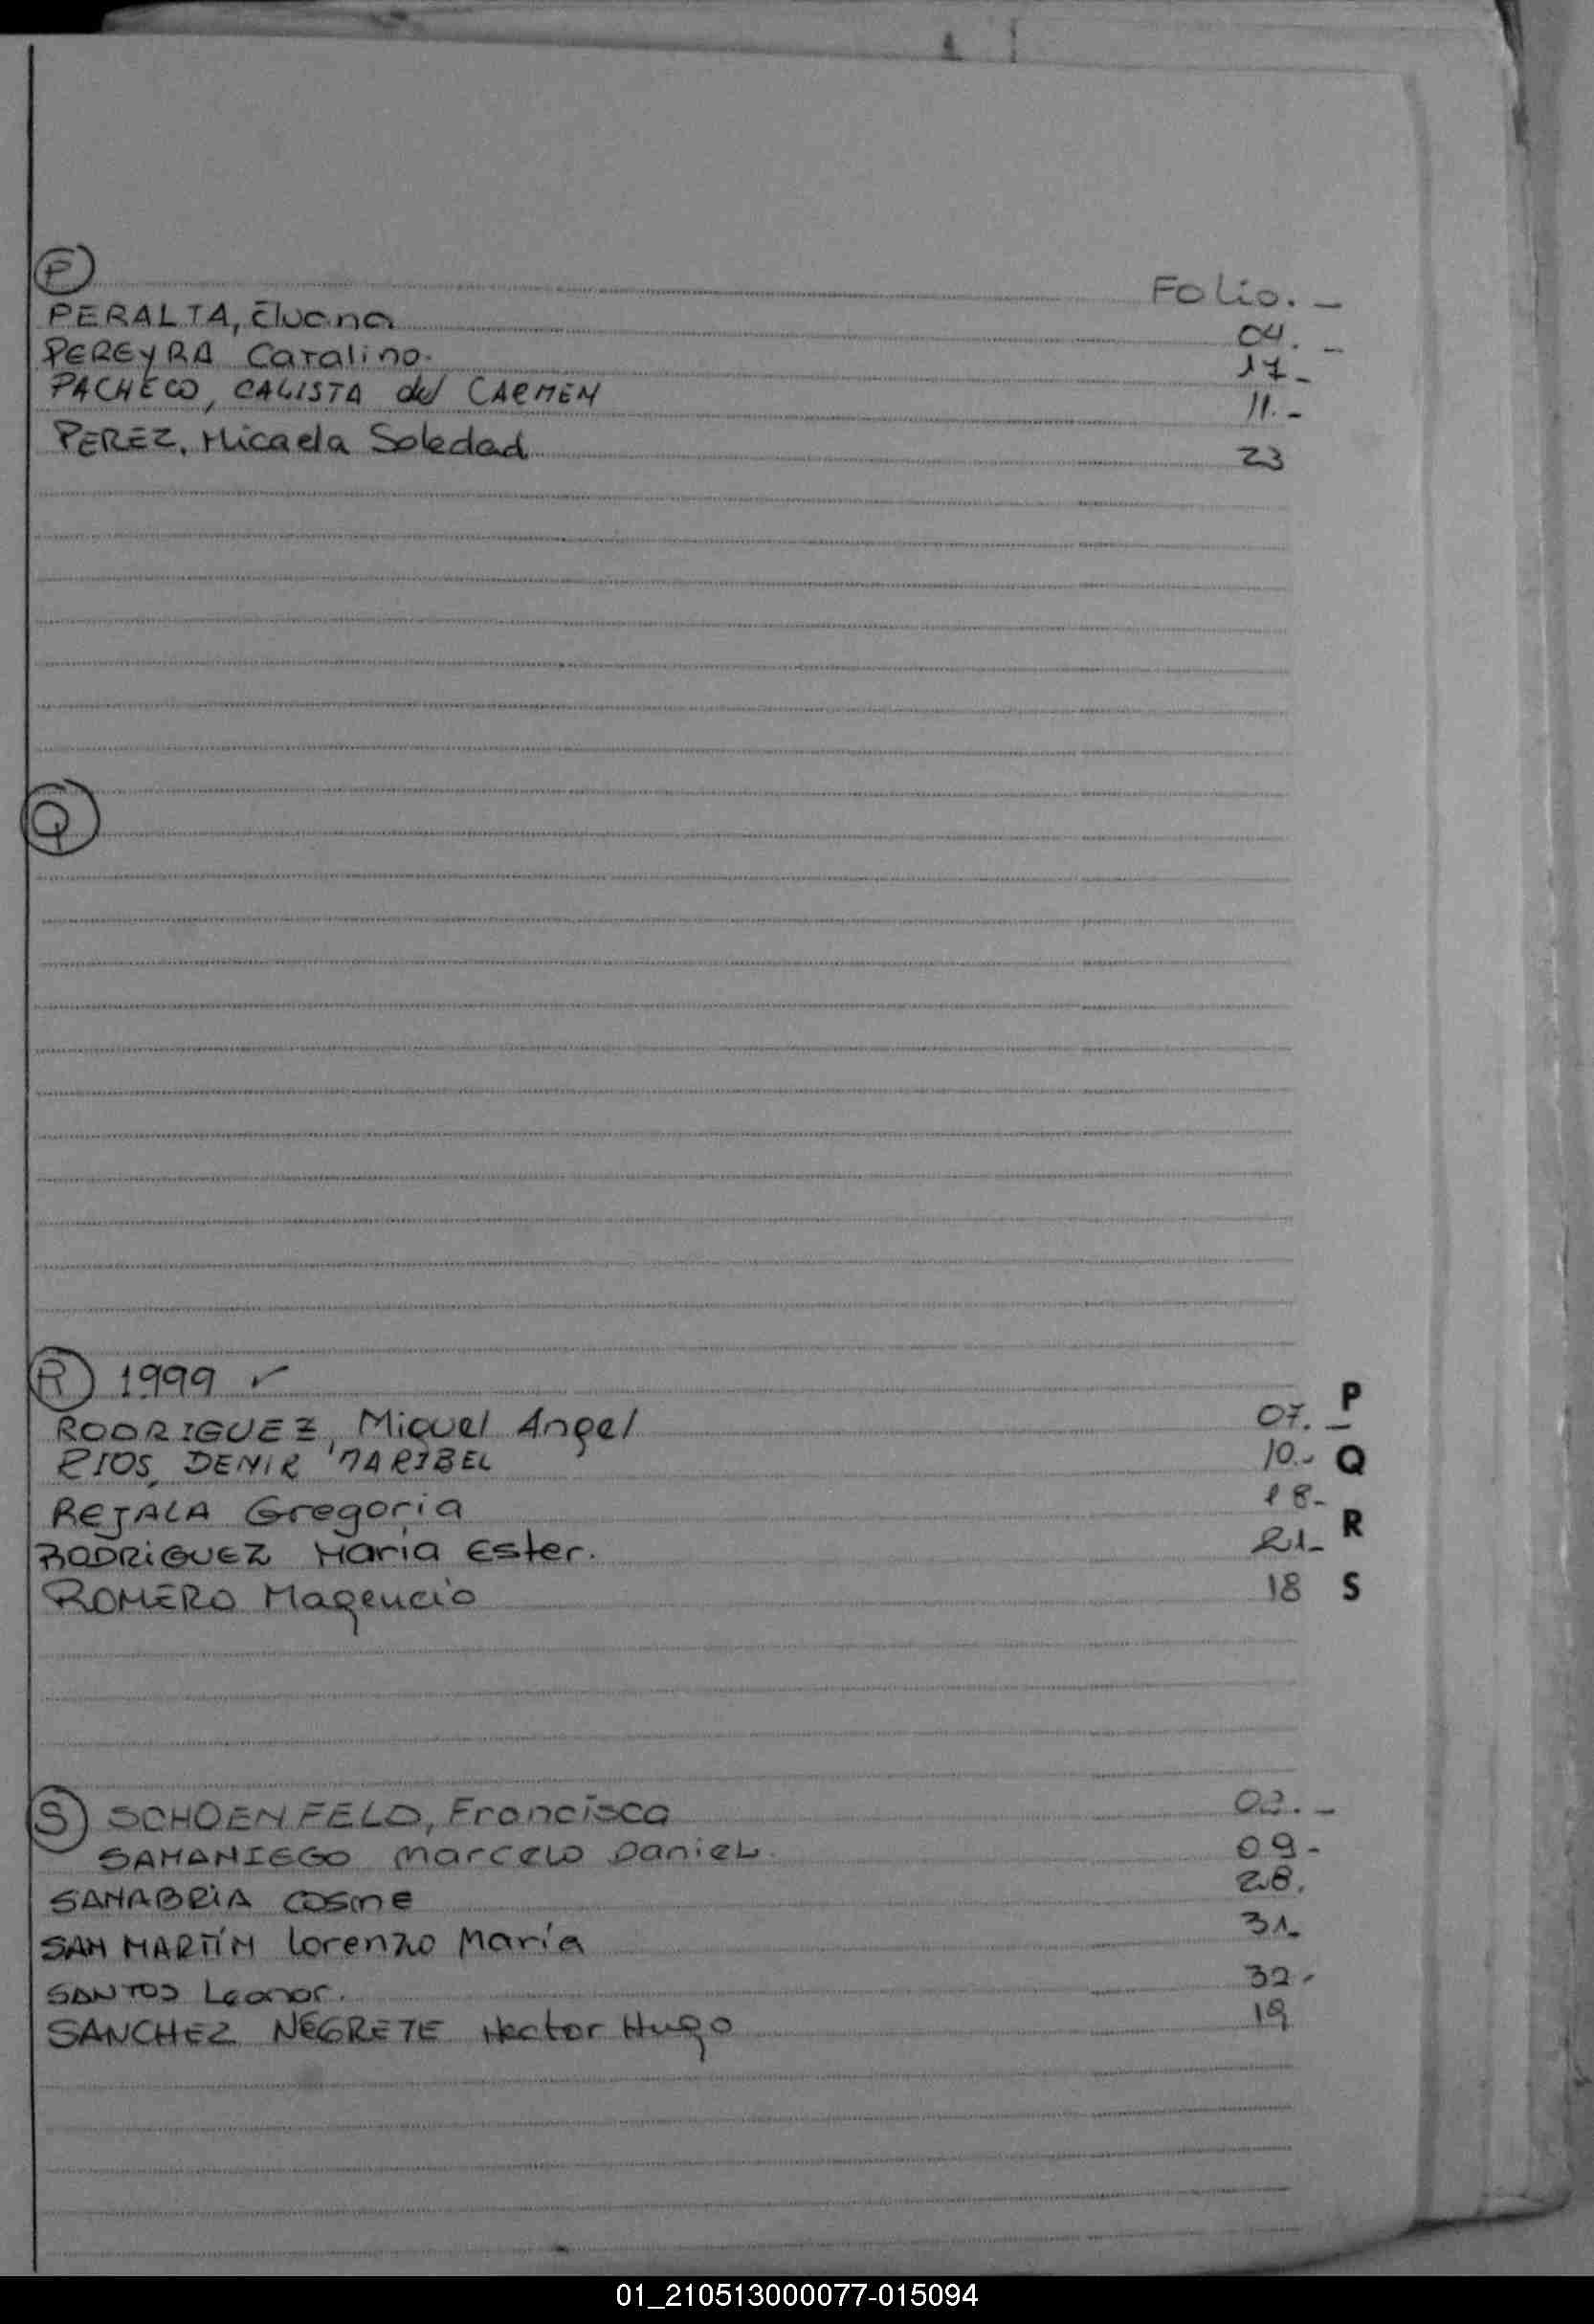 P
Folio. -
PERALTA, Eluana 04. -
PEREYRA Catalino. 17-
PACHECO, CALISTA del CARMEN 11.-
PEREZ, Micaela Soledad 23
Q
R 1999 ✓
RODRIGUEZ, Miguel Angel 07. -
RIOS, DENIR MARIBEL 10.-
REJALA Gregoria 18-
RODRIGUEZ María Ester. 21-
ROMERO Magencio 18
P
Q
R
S
S SCHOENFELD, Francisca 03. -
SAMANIEGO Marcelo Daniel. 09-
SANABRIA Cosme 28.
SAN MARTÍN Lorenzo María 31-
SANTOS Leonor. 32-
SANCHEZ NEGRETE Hector Hugo 19
01_210513000077-015094